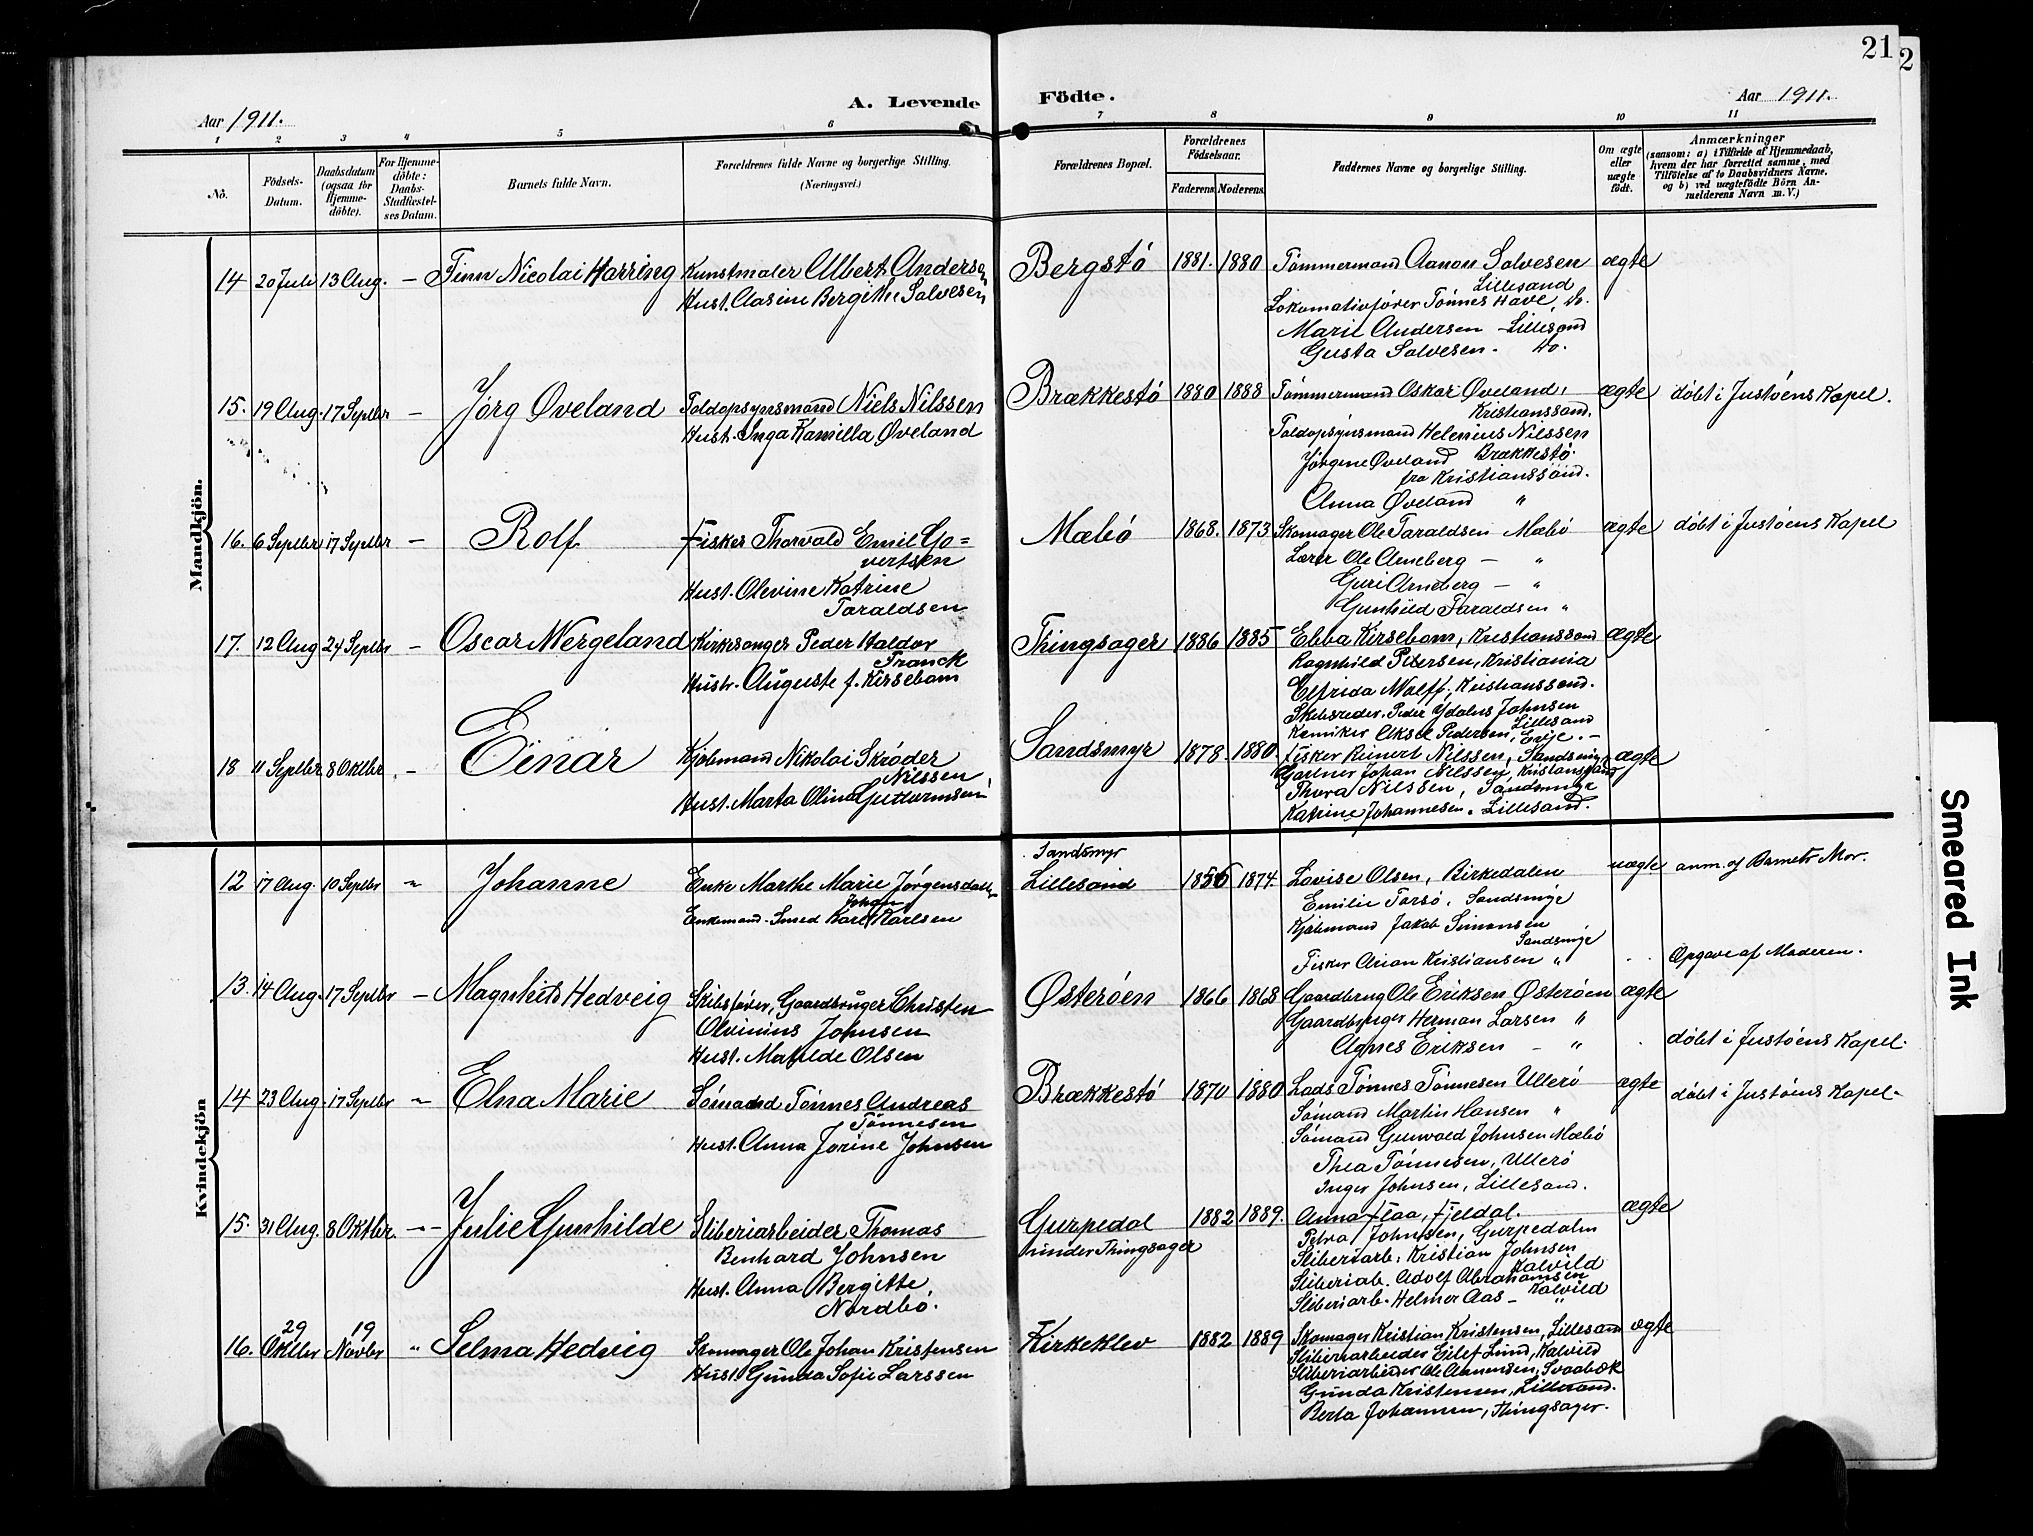 21
2
Aar 1911.
A. Levende Födte.
Aar 1911.
1 2 3 4 5 6 7 8 9 10 11
No.
Födsels-Datum.
Daabsdatum (ogsaa for Hjemme-döbte).
For Hjemme-döbte: Daabs-Stadfæstel-ses Datum.
Barnets fulde Navn.
Forældrenes fulde Navne og borgerlige Stilling.
(Næringsvei.)
Forældrenes Bopæl.
Forældrenes Födselsaar.
Faderens Moderens.
Faddernes Navne og borgerlige Stilling.
Om ægte eller uægte födt.
Anmærkninger
(saasom: a) i Tilfælde af Hjemmedaab,
hvem der har forrettet samme, med
Tilföielse af to Daabsvidners Navne.
og b) ved uægtefödte Börn An-
melderens Navn m. V.)
Mandkjön.
14 20 Juli 13 Aug. – Finn Nicolai Harring Kunstmaler Albert Andersen Bergstö 1881. 1880 Tömmermand Aanon Salvesen ægte
Hust. Oasine Bergithe Salvesen Lillesand
Lokomotivförer Tönnes Have, do.
Marie Andersen – Lillesand
Gusta Salvesen. do.
15. 19 Aug. 17 Septbr – Jörg Øveland Toldopsynsmand Niels Nilssen Brækkestö 1880 1888 Tömmermand Oskar Øveland, ægte döbt i Justöens Kapel.
Hust. Inga Kamilla Øveland Kristianssand.
Toldopsynsmand Helenius Nilssen
Jörgine Øveland Brækkestö.
fra Kristianssand.
Anna Øveland "
16. 6 Septbr 17 Septbr – Rolf Fisker Thorvald Emil Go= Mæbö 1868. 1873 Skomager Ole Taraldsen Mæbö ægte döbt i Justöens Kapel
vertsen Lærer Ole Arneberg – "
Hust. Olevine Katrine Guri Arneberg – "
Taraldsen Gunhild Taraldsen "
17. 12 Aug 24 Septbr – Oscar Nergeland Kirkesanger Peder Haldor Thingsager 1886 1885 Ebba Kirsebom, Kristianssand ægte
Franck Ragnhild Petersen, Kristiania
Hustr. Auguste f. Kirsebom Elfrida Wolff, Kristianssand.
Skibsreder. Peder Ydalus Johnsen
Lillesand
Kemiker Aksel Pedersen, Evje. –
18 11 Septbr 8 Oktbr. – Einar Kjöbmand Nikolai Skröder Sandsmyr 1878. 1880. Fisker Reinert Nilssen, Sandsmyr, ægte
Nilssen Gartner Johan Nilssen, Kristianssand
Hust. Marta Olina Guttormsen Thora Nilssen, Sandsmyr
Katrine Johannesen. Lillesand.
Kvindekjön
Sandsmyr
12 17 Aug. 10 Septbr " Johanne Enke Marthe Marie Jörgensdatter Lillesand 1856 1874 Lovise Olsen, Birkedalen uægte anm. af Barnets Mor.
Johan
Enkemand. Smed Karl Karlsen Emilie Torsö, Sandsmyr
Kjöbmand Jakob Simonsen
Sandsmyr
Fisker Arian Kristiansen " Opgave af Moderen.
13. 14 Aug. 17 Septbr – Magnhild Hedveig Skibsförer, Gaardbruger Christen Østeröen 1866 1868 Gaardbrug Ole Eriksen Østeröen ægte
Olvinius Johnsen Gaardbruger Herman Larsen "
Hust. Matilde Olsen Agnes Eriksen – " döbt i Justöens Kapel.
14 23 Aug. 17 Septbr " Elna Marie Sömand Tönnes Andreas Brækkestö 1870 1880 Lods Tönnes Tönnesen Ulerö ægte döbt i Justöens Kapel.
Tönnesen Sömand Martin Hansen "
Hust. Anna Jorine Johnsen Sömand Gunvald Johnsen Mæbö
Thea Tönnesen, Ulerö
Inger Johnsen, Lillesand.
15. 31 Aug. 8 Oktbr. – Julie Gunhilde Sliberiarbeider Thomas Gurpedal 1882 1889. Anna Flaa, Fjeldal. ægte
Benhard Johnsen under Thingsager Petra Johnsen, Gurpedalen
Hust. Anna Bergitte Sliberiarb. Kristian Johnsen
Nordbö. Kalvild
Sliberiab. Adolf Abrahamsen
Sliberiarb. Helmer Aas – Kalvild
16. 29 Oktbr 19 Novbr " Selma Hedvig Skomager Ole Johan Kristensen Kirkeklev 1882 1889 Skomager Kristian Kristensen, Lillesand ægte
Hust. Gunda Sofie Larssen Sliberiarbeider Eilef Lund, Kalvild
Sliberiarbeider Ole Aanonsen, Svaabæk
Gunda Kristensen, Lillesand.
Berta Johannesen, Thingsager.
Smeared Ink